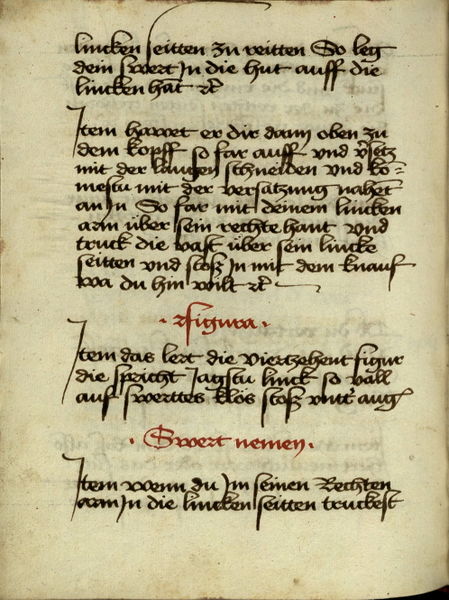 lincken seitten zu reitten So leg
dem swert In die hut auff die
lincken hāt ꝛc̄
Item hawet er dir dann oben zu
dem kopff so far auff vnd v̄setz
mit der langen schneiden vnd ko=
mestu mit der versatzung nahet
an In So far mit deinem lincken
arm über sein rechte hant vnd
truck die vast über sein lincke
seitten vnd stosß In mit dem knauf
wa du hin wilt ꝛc̄
· 2 figura ·
Item das lert die viertzehent figur
die spricht Jagstu linck so vall
auf swerttes klos stosß vntt' auḡ
· Swert nemen ·
Item wenn du Im seinen Rechten
arm In die lincken seitten truckest